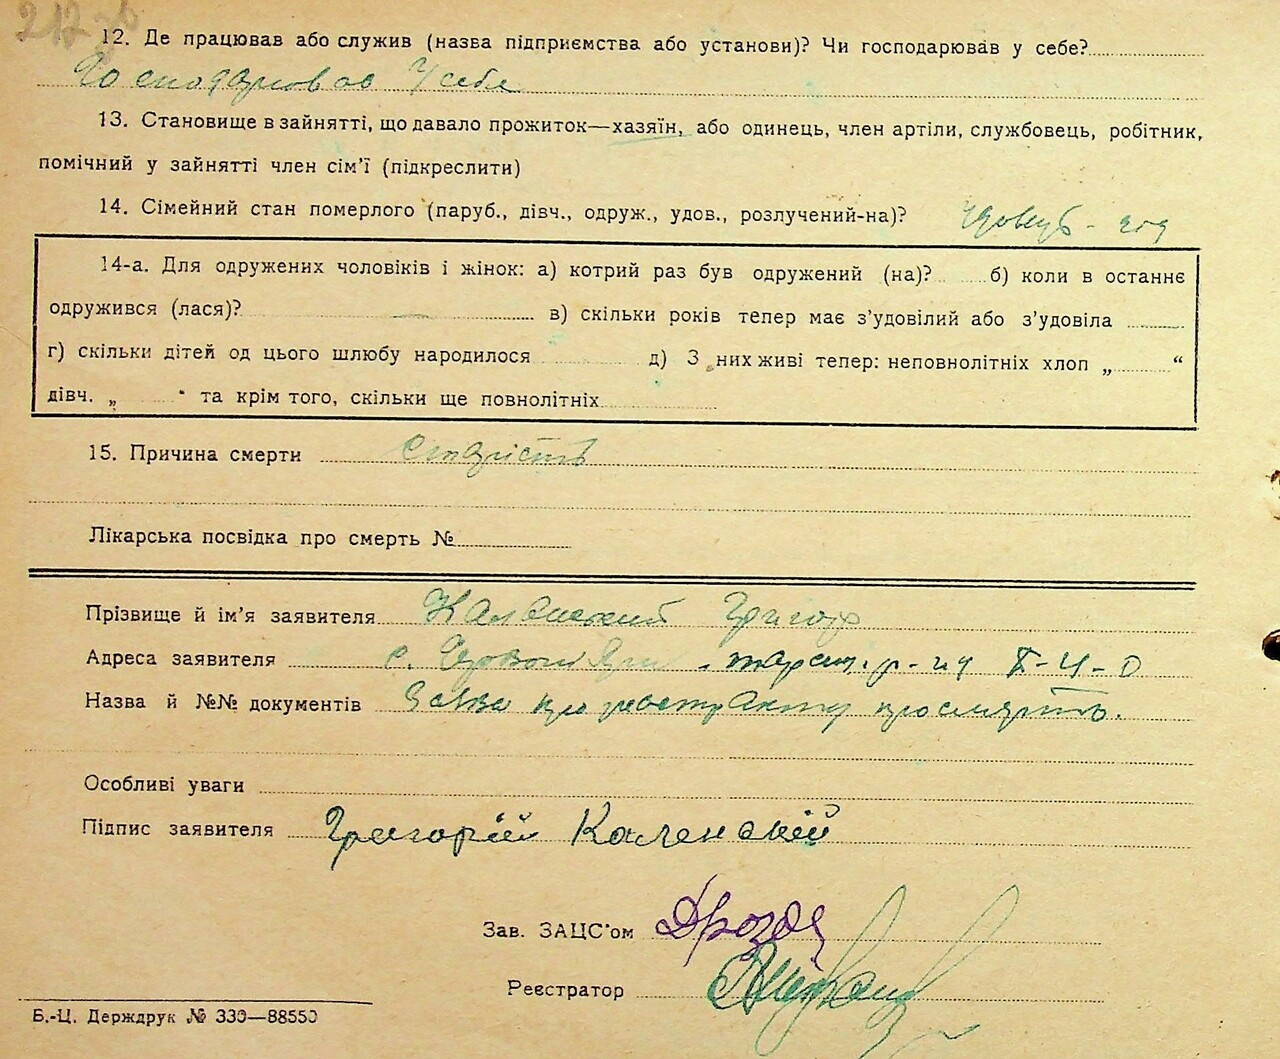 12. Де працював або служив (назва підприємства або установи)? Чи господарював у себе?
Господарював у себе
13. Становище в зайнятті, що давало прожиток—хазяїн, або одинець, член артіли, службовець, робітник,
помічний у зайнятті член сім'ї (підкреслити)
14. Сімейний стан померлого (паруб., дівч., одруж., удов., розлучений-на)?
14-а. Для одружених чоловіків і жінок: а) котрий раз був одружений (на)? б) коли в останнє
одружився (лася)? в) скільки років тепер має з'удовілий або з'удовіла
г) скільки дітей од цього шлюбу народилося д) З них живі тепер: неповнолітніх хлоп „ “
дівч. „ “ та крім того, скільки ще повнолітніх
15. Причина смерти старість
Лікарська посвідка про смерть №
Прізвище й ім'я заявителя Каленський Григор
Адреса заявителя с. Яри таращ. р-ну Б-Ц-О
Назва й №№ документів Заява про реєстр акту про смерть.
Особливі уваги
Підпис заявителя Григорій Каленскій
Зав. ЗАЦС'ом Дрозд
Реєстратор
Б.-Ц. Держдрук № 339—88550